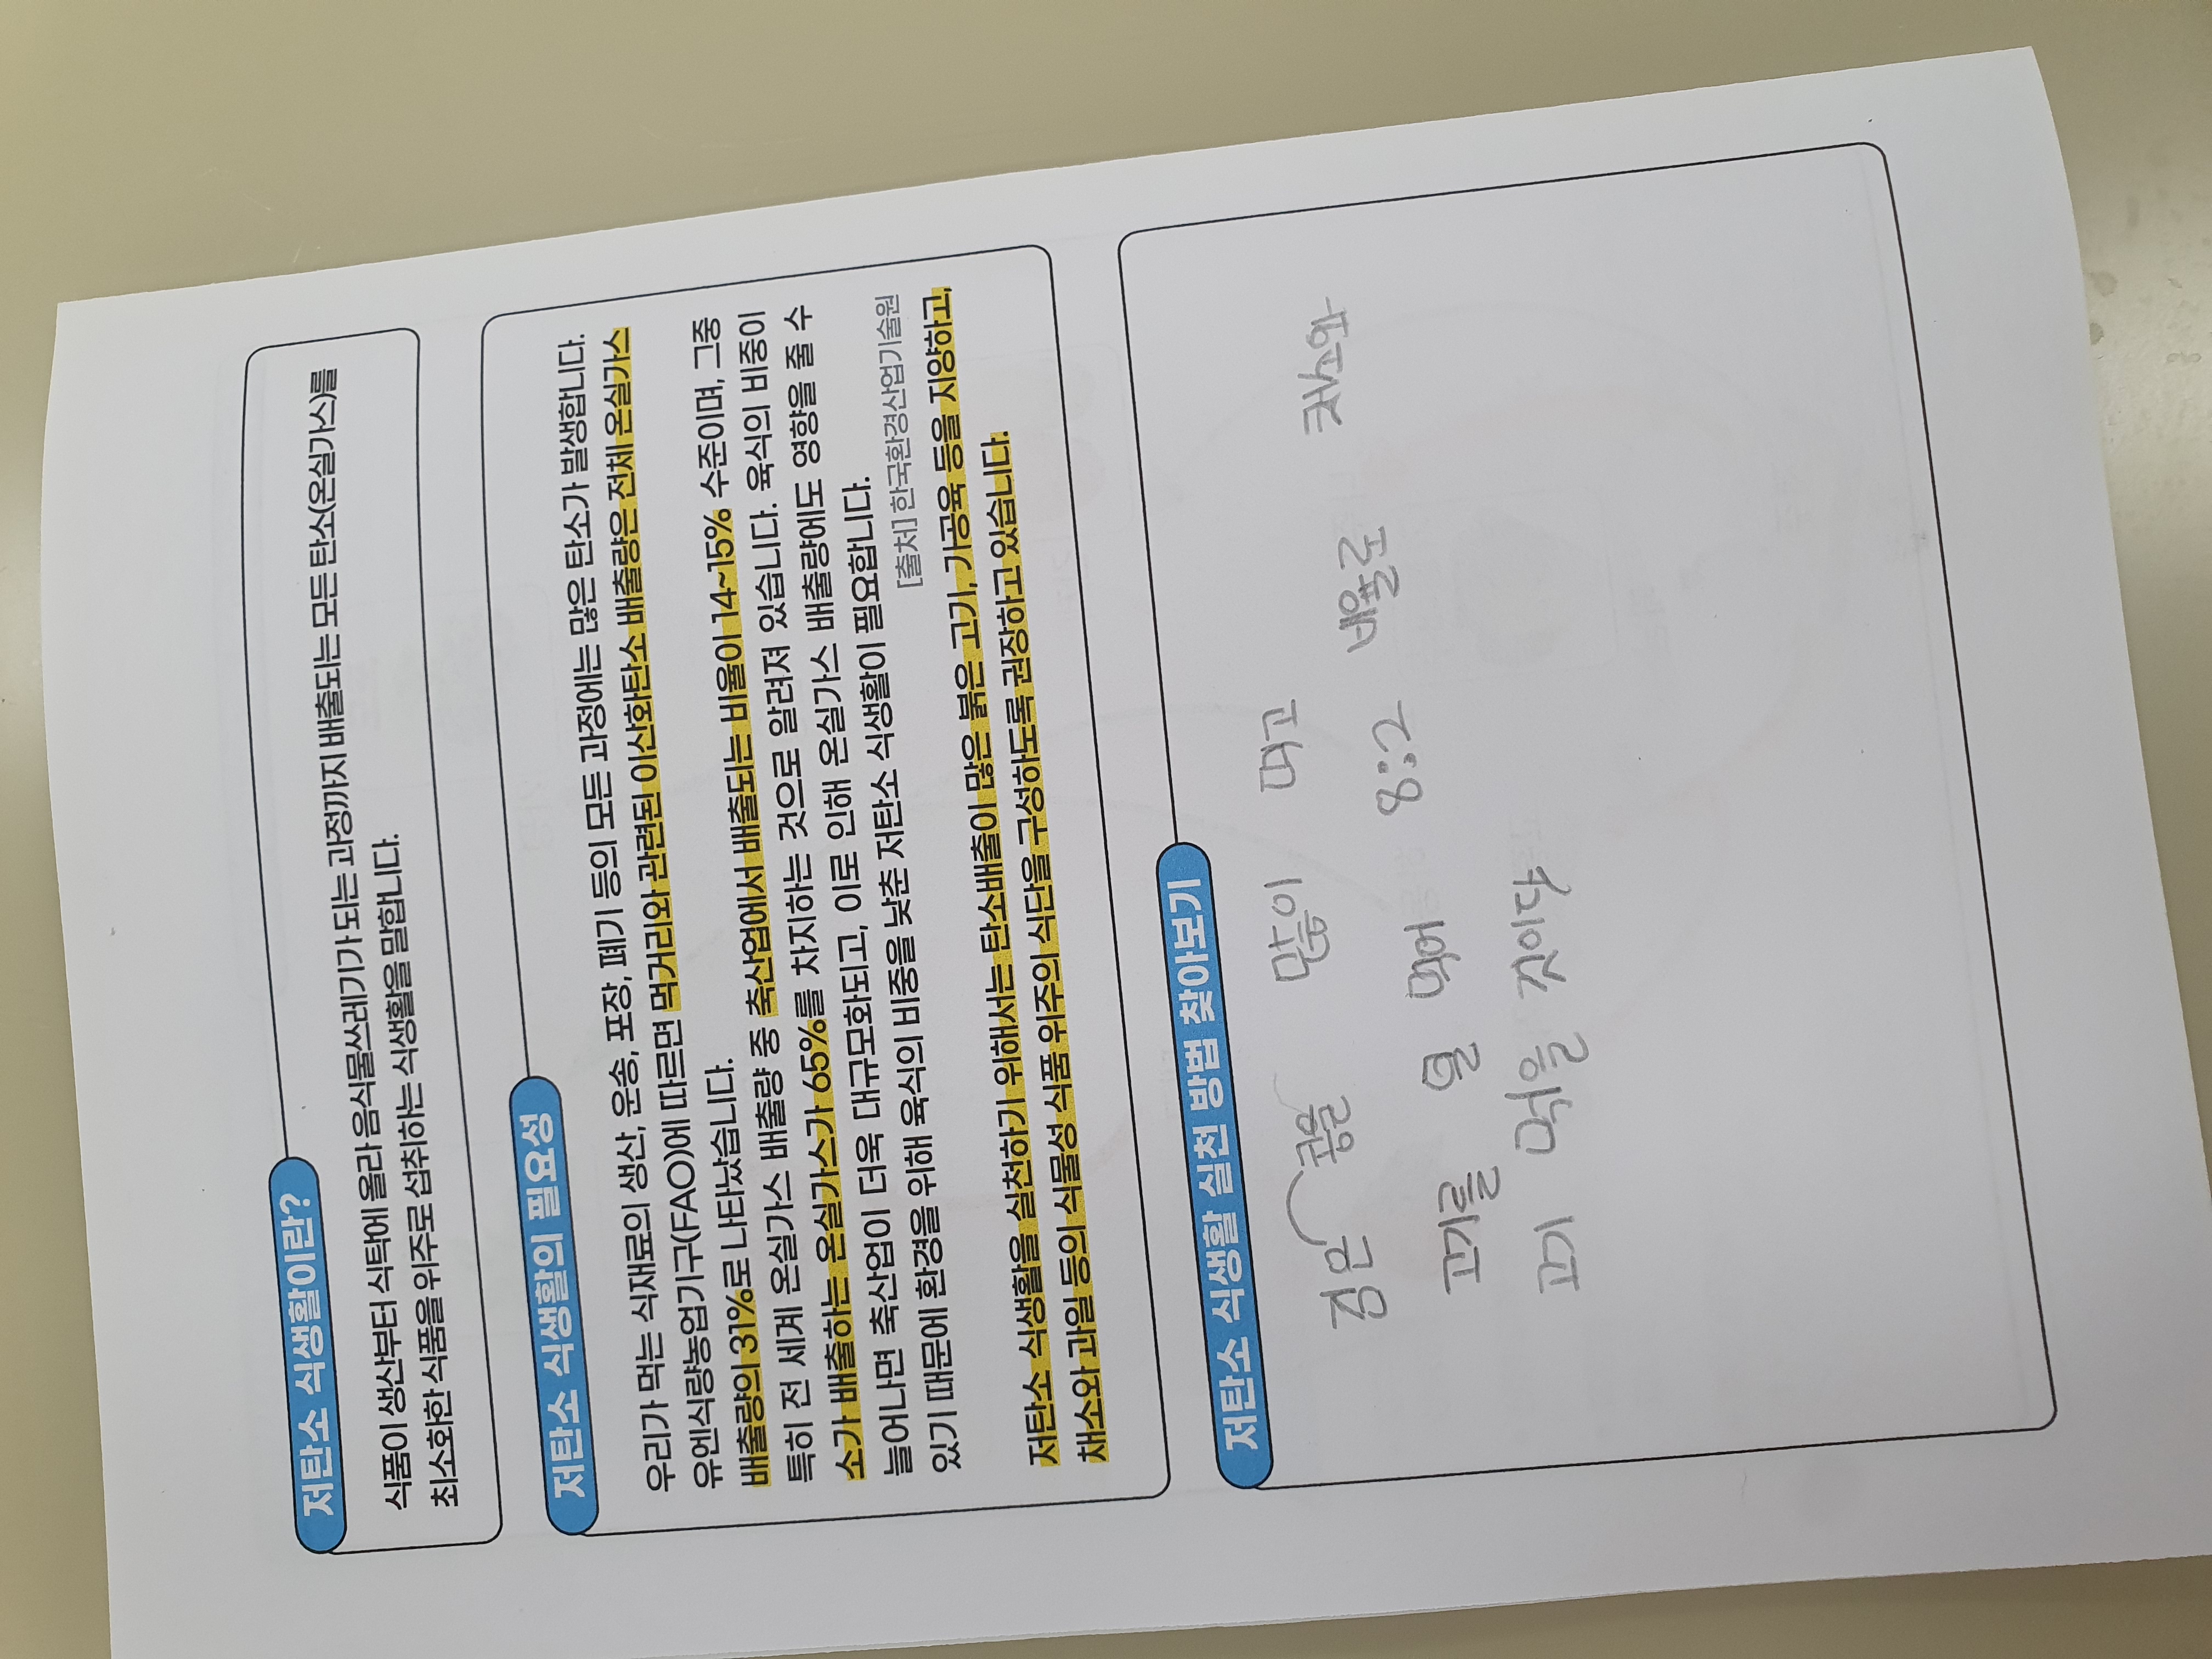 저탄소 식생활이란?
식품이 생산부터 식탁에 올라 음식물쓰레기가 되는 과정까지 배출되는 모든 탄소(온실가스)를
최소화한 식품을 위주로 섭취하는 식생활을 말합니다.
저탄소 식생활의 필요성
우리가 먹는 식재료의 생산, 운송, 포장, 폐기 등의 모든 과정에는 많은 탄소가 발생합니다.
유엔식량농업기구(FAO)에 따르면 먹거리와 관련된 이산화탄소 배출량은 전체 온실가스
배출량의 31%로 나타났습니다.
특히 전 세계 온실가스 배출량 중 축산업에서 배출되는 비율이 14~15% 수준이며, 그중
소가 배출하는 온실가스가 65%를 차지하는 것으로 알려져 있습니다. 육식의 비중이
늘어나면 축산업이 더욱 대규모화되고, 이로 인해 온실가스 배출량에도 영향을 줄 수
있기 때문에 환경을 위해 육식의 비중을 낮춘 저탄소 식생활이 필요합니다.
[출처] 한국환경산업기술원
저탄소 식생활을 실천하기 위해서는 탄소배출이 많은 붉은 고기, 가공육 등을 지양하고,
채소와 과일 등의 식물성 식품 위주의 식단을 구성하도록 권장하고 있습니다.
저탄소 식생활 실천 방법 찾아보기
검은 콩을 많이 먹고 채소와
고기를 덜 먹어 8:2 배율로
고기 먹을 것이다